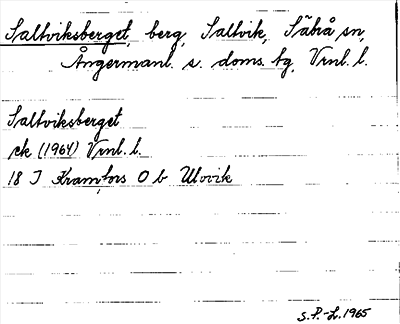 Saltviksberget, berg, Saltvik, Säbrå sn,
Ångermanl. s. doms. tg, Vrnl. l.
Saltviksberget
rk (1964) Vrnl. l.
18 I Kramfors O b Ulvvik
S.P.-L. 1965